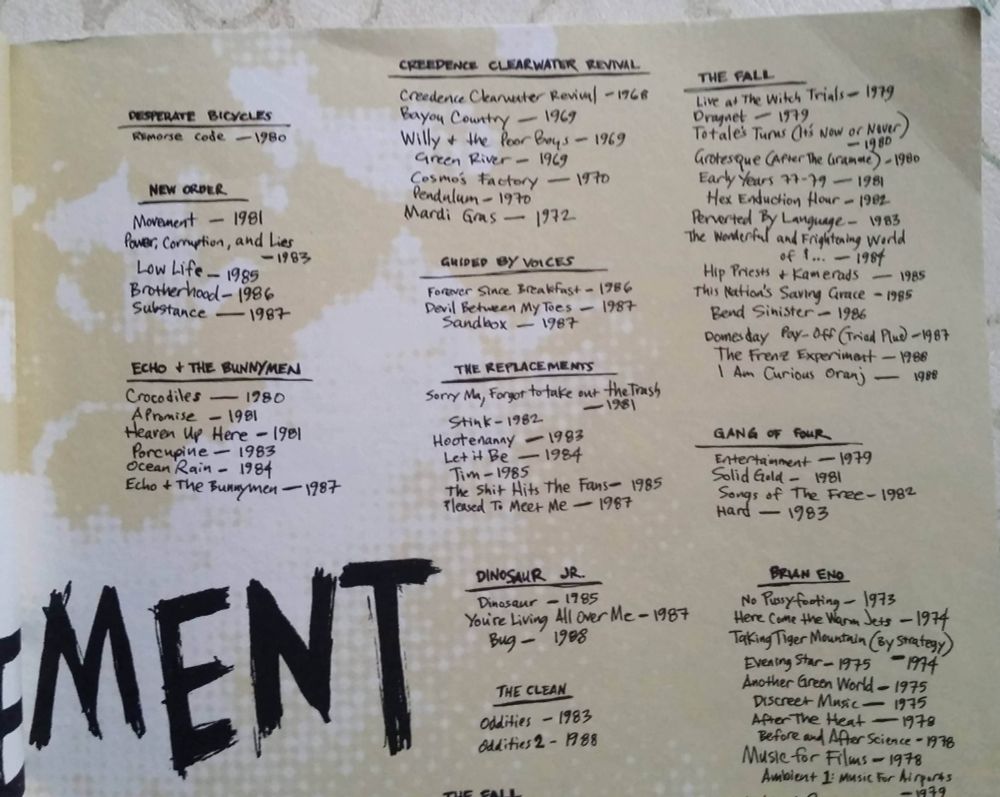 DESPERATE BICYCLES
Remorse Code — 1980
NEW ORDER
Movement — 1981
Power, Corruption, and Lies
— 1983
Low Life — 1985
Brotherhood — 1986
Substance — 1987
ECHO + THE BUNNYMEN
Crocodiles — 1980
A Promise — 1981
Heaven Up Here — 1981
Porcupine — 1983
Ocean Rain — 1984
Echo + The Bunnymen — 1987
CREEDENCE CLEARWATER REVIVAL
Creedence Clearwater Revival — 1968
Bayou Country — 1969
Willy + the Poor Boys — 1969
Green River — 1969
Cosmo's Factory — 1970
Pendulum — 1970
Mardi Gras — 1972
GUIDED BY VOICES
Forever Since Breakfast — 1986
Devil Between My Toes — 1987
Sandbox — 1987
THE REPLACEMENTS
Sorry Ma, Forgot to take out the Trash
— 1981
Stink — 1982
Hootenanny — 1983
Let it Be — 1984
Tim — 1985
The Shit Hits The Fans — 1985
Pleased To Meet Me — 1987
DINOSAUR JR.
Dinosaur — 1985
You're Living All Over Me — 1987
Bug — 1988
THE CLEAN
Oddities — 1983
Oddities 2 — 1988
THE FALL
THE FALL
Live at The Witch Trials — 1979
Dragnet — 1979
Totale's Turns (It's Now or Never)
— 1980
Grotesque (After The Gramme) — 1980
Early Years 77-79 — 1981
Hex Enduction Hour — 1982
Perverted By Language — 1983
The Wonderful and Frightening World
of !... — 1984
Hip Priests + Kamerads — 1985
This Nation's Saving Grace — 1985
Bend Sinister — 1986
Domesday Pay-Off (Triad Plus) — 1987
The Frenz Experiment — 1988
I Am Curious Oranj — 1988
GANG OF FOUR
Entertainment — 1979
Solid Gold — 1981
Songs of The Free — 1982
Hard — 1983
BRIAN ENO
No Pussyfooting — 1973
Here Come the Warm Jets — 1974
Taking Tiger Mountain (By Strategy)
— 1974
Evening Star — 1975
Another Green World — 1975
Discreet Music — 1975
After The Heat — 1978
Before and After Science — 1978
Music for Films — 1978
Ambient 1: Music For Airports
— 1979
EMENT